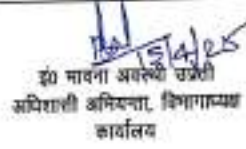 15/4/25
इं0 मावना अवस्थी उप्रेती
अधिशासी अभियन्ता, विभागाध्यक्ष
कार्यालय